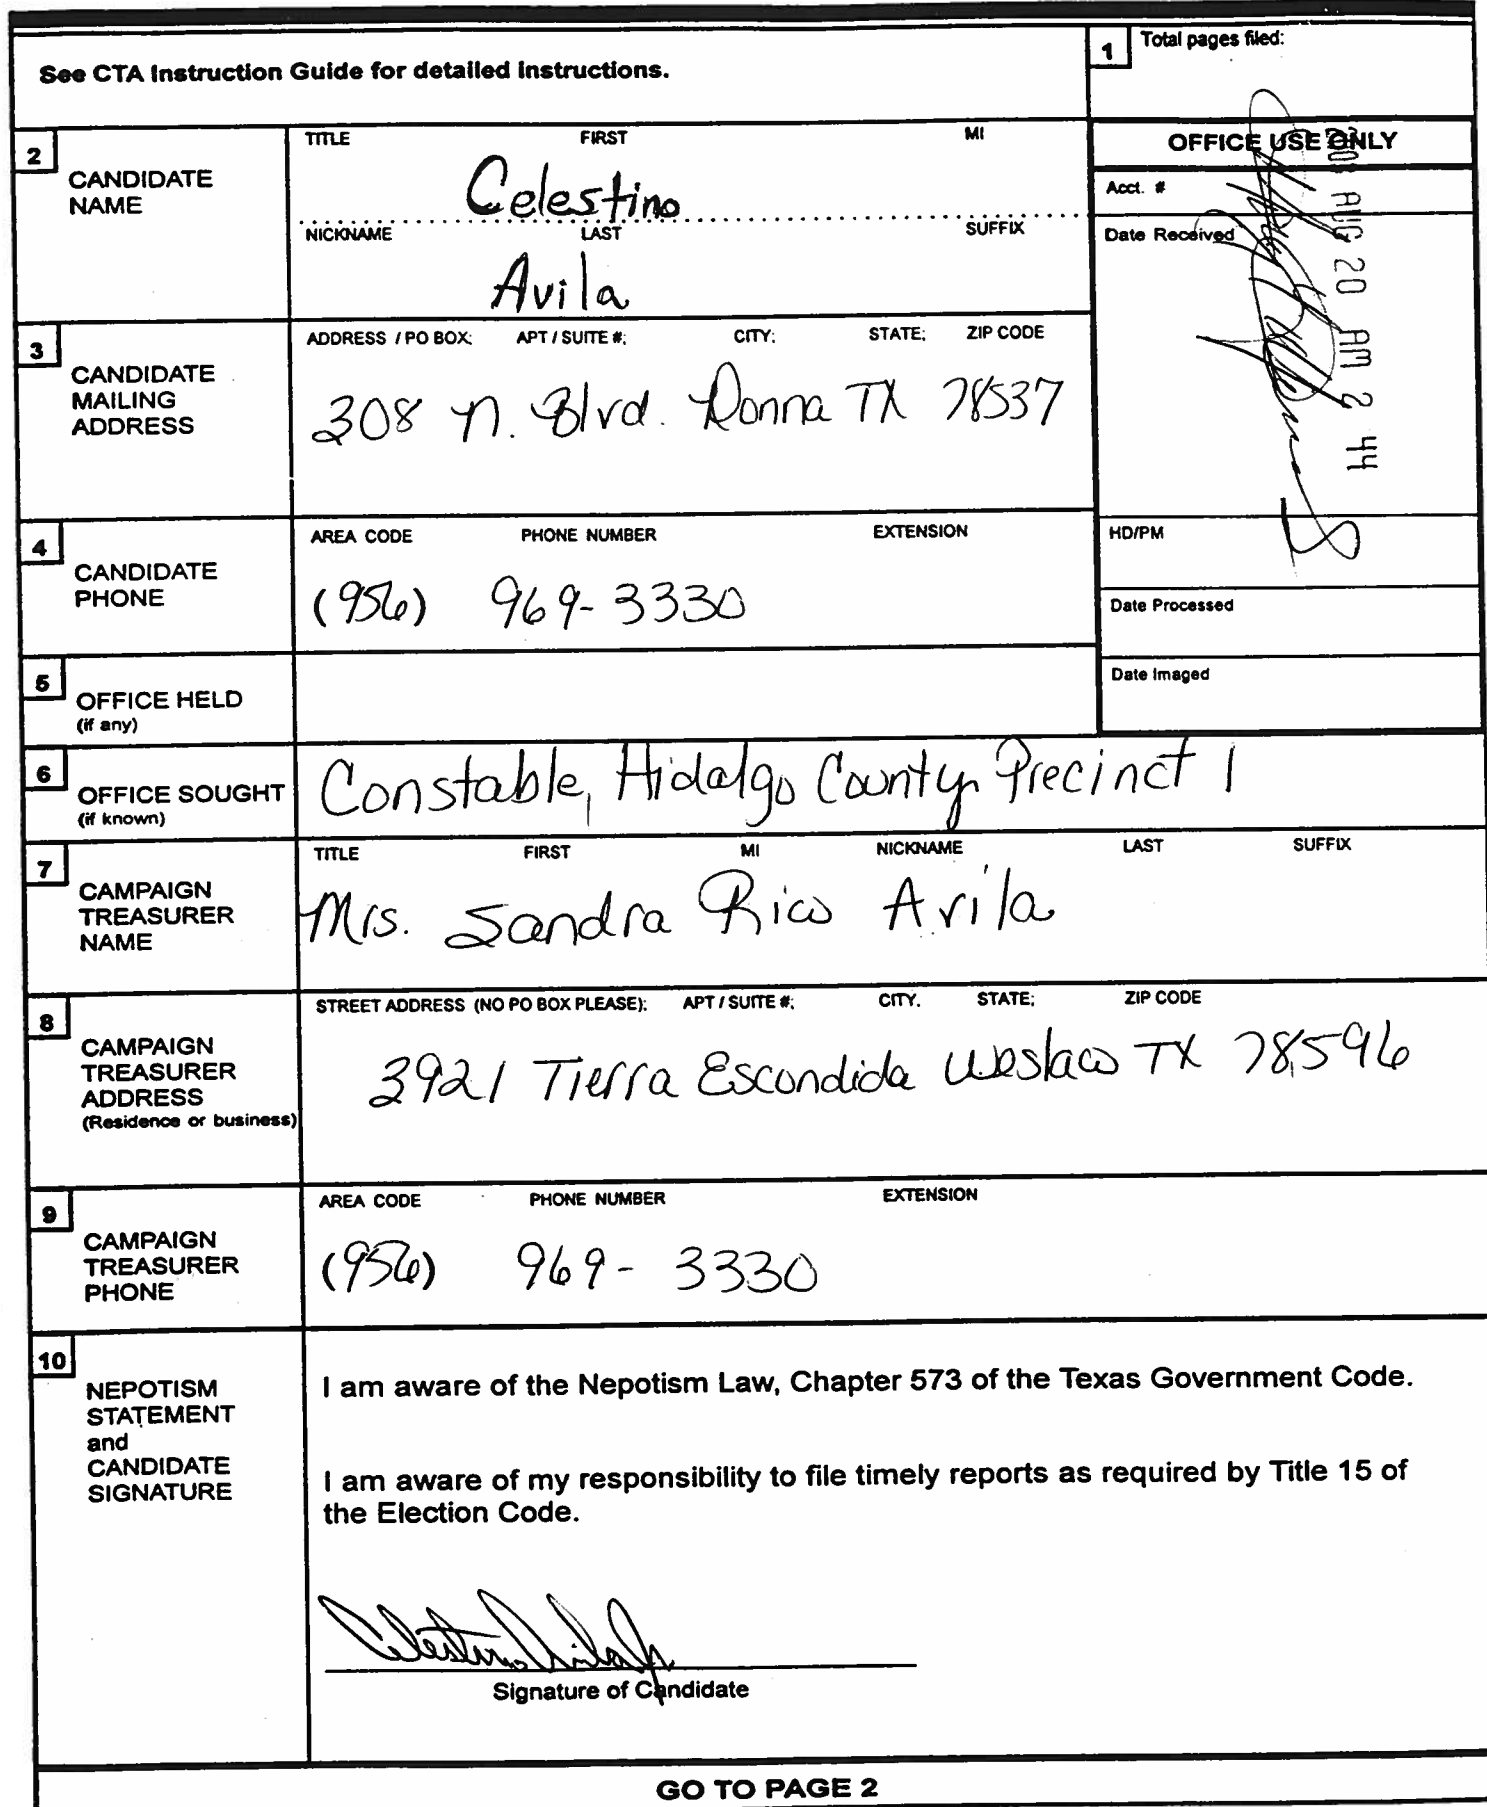 See CTA Instruction Guide for detailed instructions.
1 Total pages filed:
2 CANDIDATE NAME
TITLE FIRST MI
Celestino
NICKNAME LAST SUFFIX
Avila
OFFICE USE ONLY
Acct. #
Date Received
AUG 20 AM 2 44
HD/PM
Date Processed
Date Imaged
3 CANDIDATE MAILING ADDRESS
ADDRESS / PO BOX; APT / SUITE #; CITY; STATE; ZIP CODE
308 N. Blvd. Donna TX 78537
4 CANDIDATE PHONE
AREA CODE PHONE NUMBER EXTENSION
(956) 969-3330
5 OFFICE HELD
(if any)
6 OFFICE SOUGHT
(if known)
Constable, Hidalgo County Precinct 1
7 CAMPAIGN TREASURER NAME
TITLE FIRST MI NICKNAME LAST SUFFIX
Mrs. Sandra Rico Avila
8 CAMPAIGN TREASURER ADDRESS
(Residence or business)
STREET ADDRESS (NO PO BOX PLEASE); APT / SUITE #; CITY. STATE; ZIP CODE
3921 Tierra Escondida Weslaco TX 78596
9 CAMPAIGN TREASURER PHONE
AREA CODE PHONE NUMBER EXTENSION
(956) 969-3330
10 NEPOTISM STATEMENT and CANDIDATE SIGNATURE
I am aware of the Nepotism Law, Chapter 573 of the Texas Government Code.
I am aware of my responsibility to file timely reports as required by Title 15 of
the Election Code.
Celestino Avila Jr.
Signature of Candidate
GO TO PAGE 2